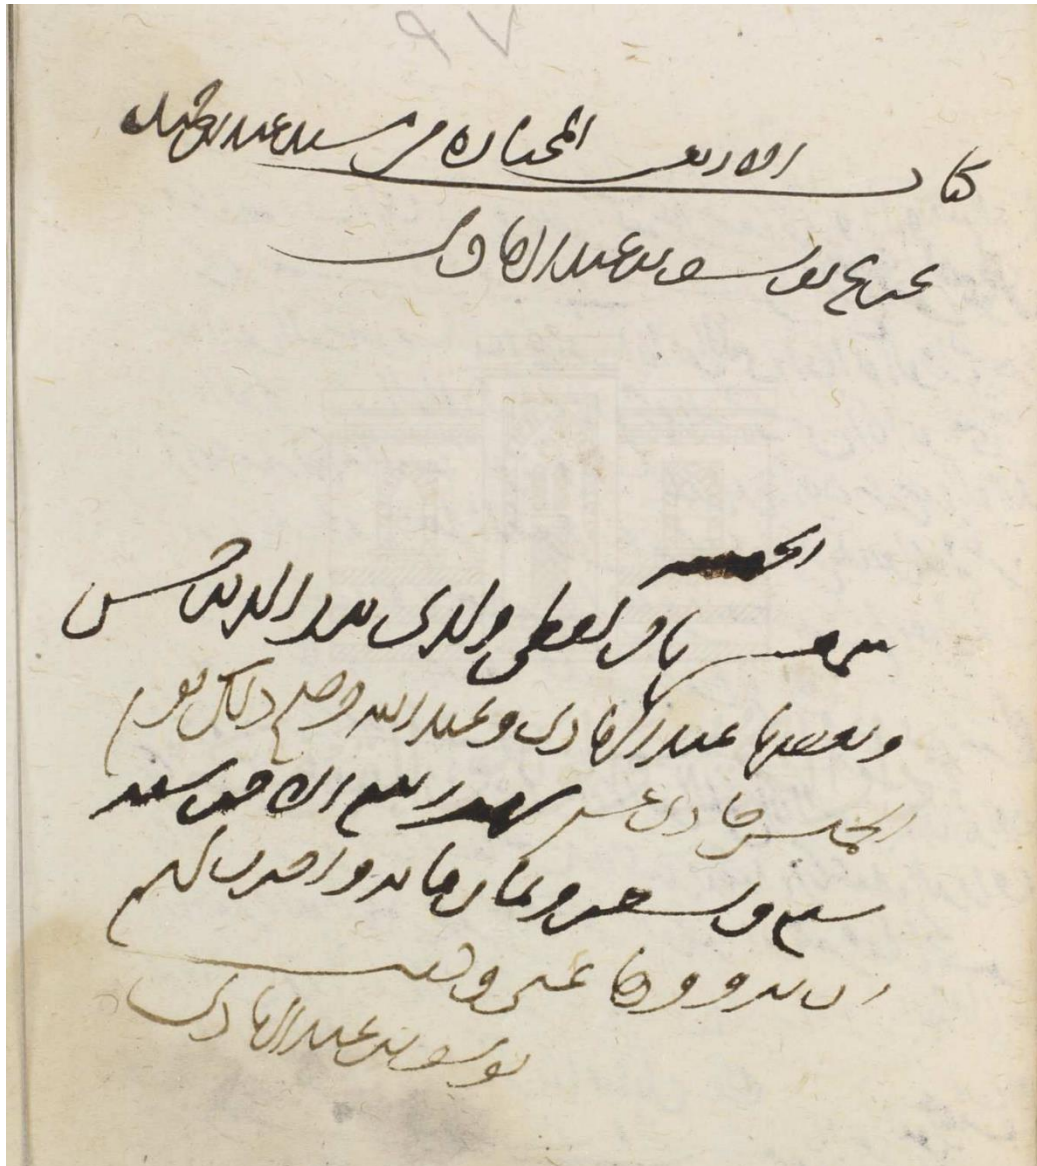 كتاب الاربعين المختارة من مسند عبد بن حميد
تخريج يوسف بن عبد الهادي
الحمد لله
سمعه من لفظي ولدي بدر الدين حسن
وبعضها عبد الهادي وعبد الله وصح ذلك يوم
الخميس حادي عشر شهر ربيع الاخر سنة
سبع وتسعين وثمان مائة واجزت لهم
ان يرووها عني وكتب
يوسف بن عبد الهادي